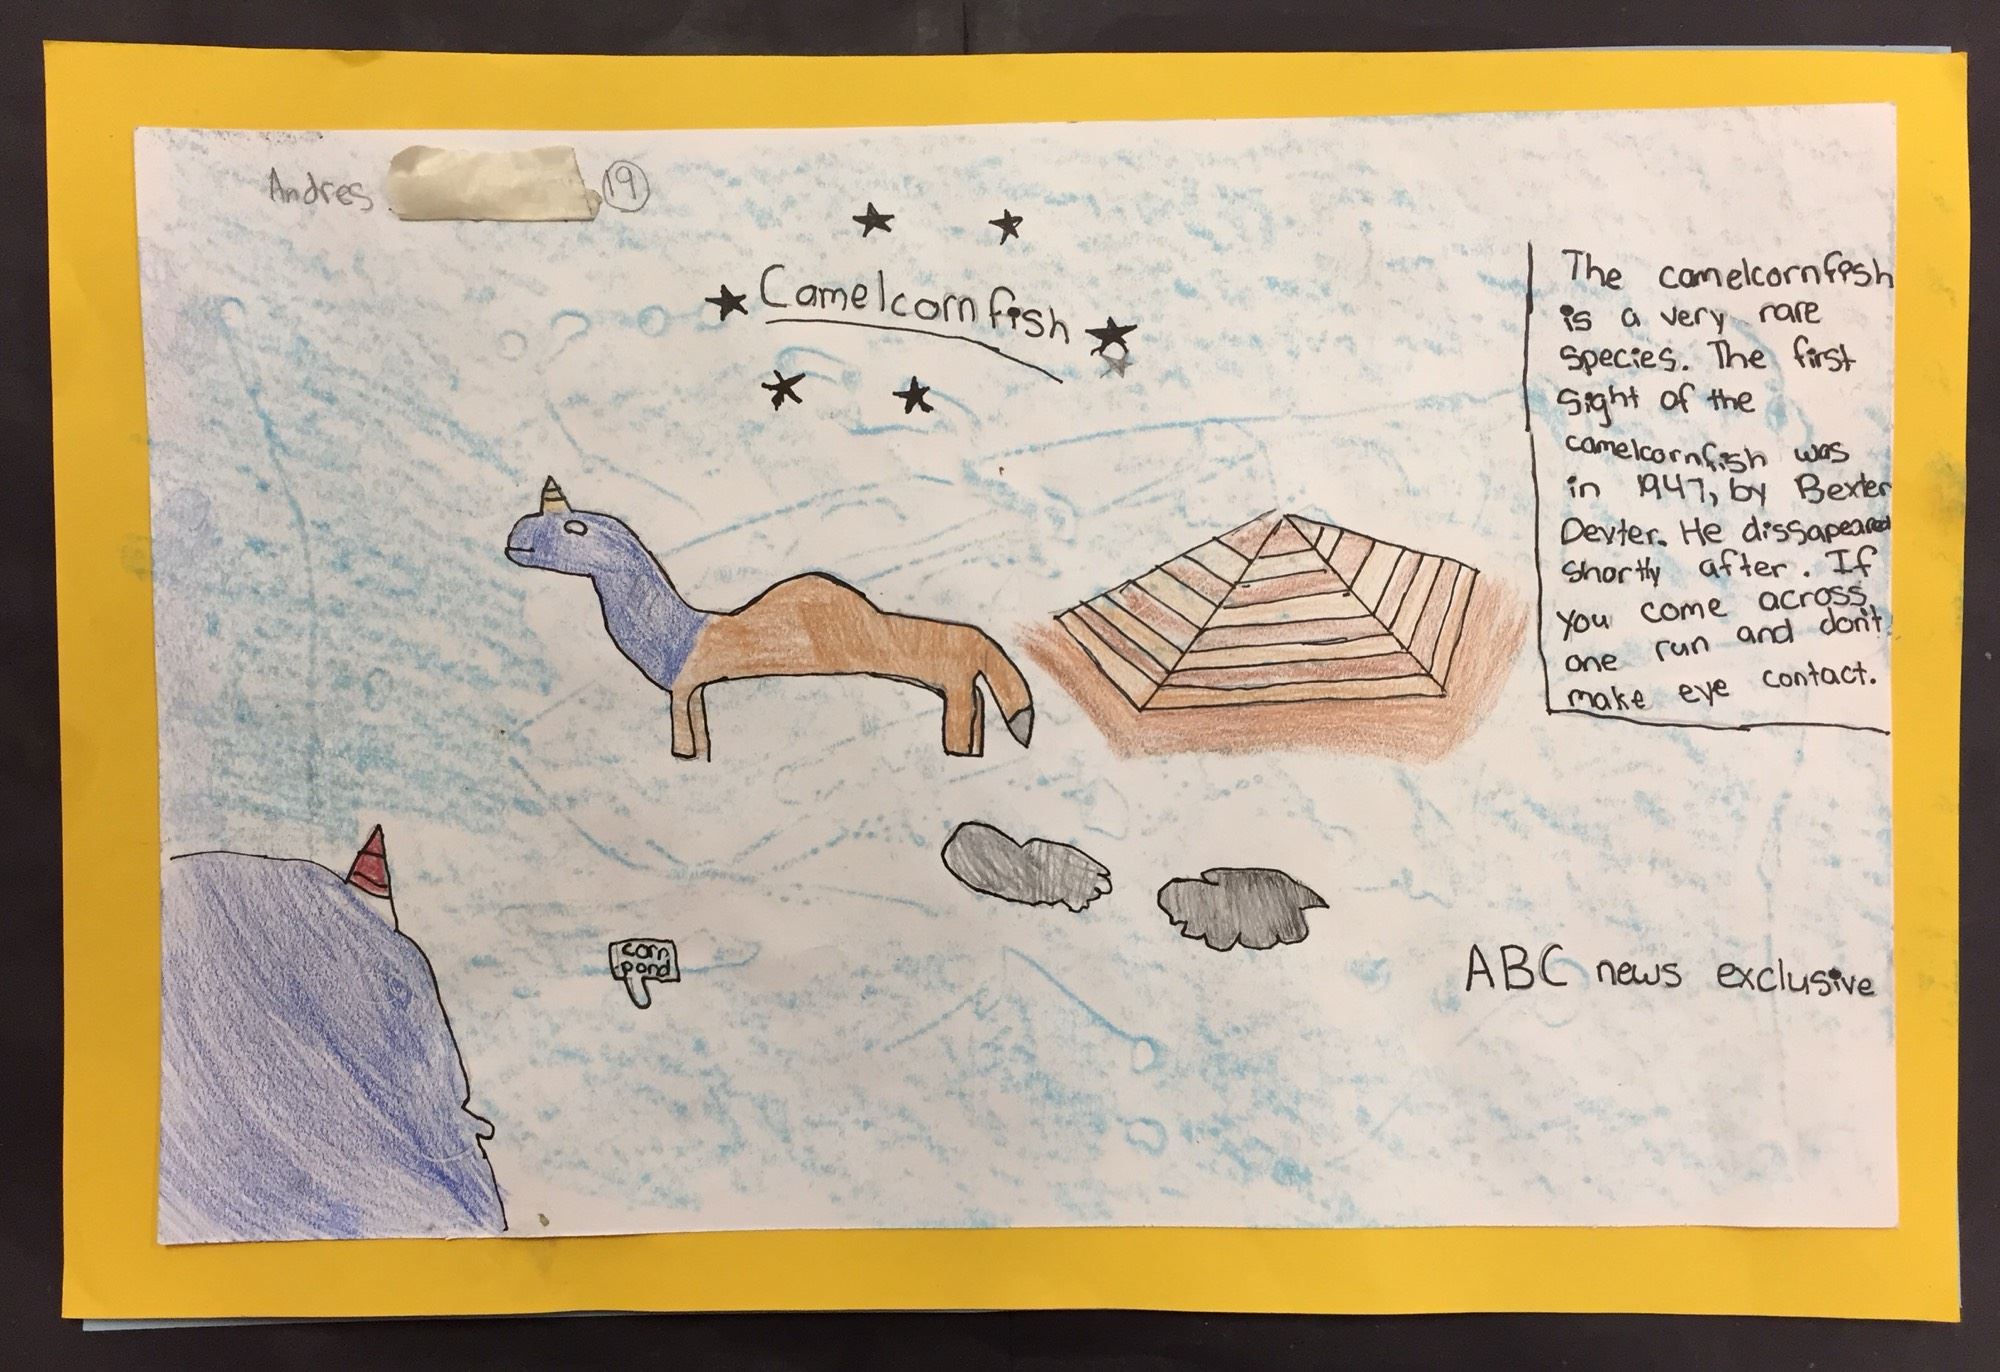 Andres 19
Camelcornfish
The camelcornfish
is a very rare
species. The first
sight of the
camelcornfish was
in 1947, by Bexter
Dexter. He dissapeared
shortly after. If
you come across
one run and don't
make eye contact.
corn
pond
ABC news exclusive